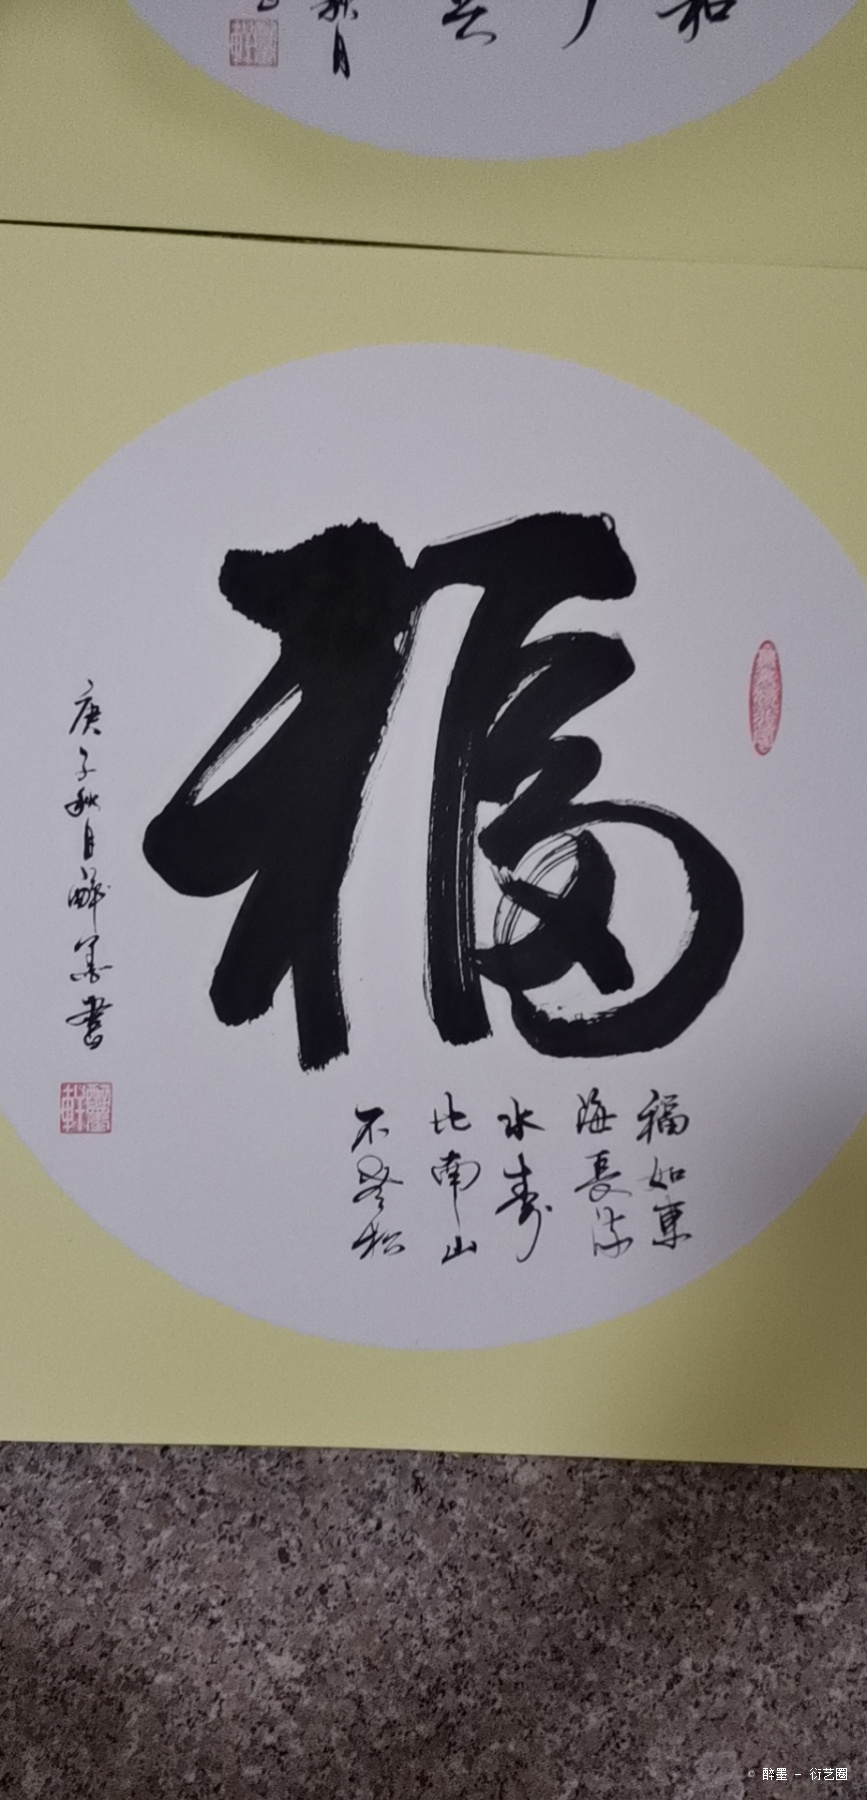 和
秋月
福
福如東
海長流
水壽
比南山
不老松
庚子秋月醉墨書
醉墨軒
© 醉墨 - 衍艺圈